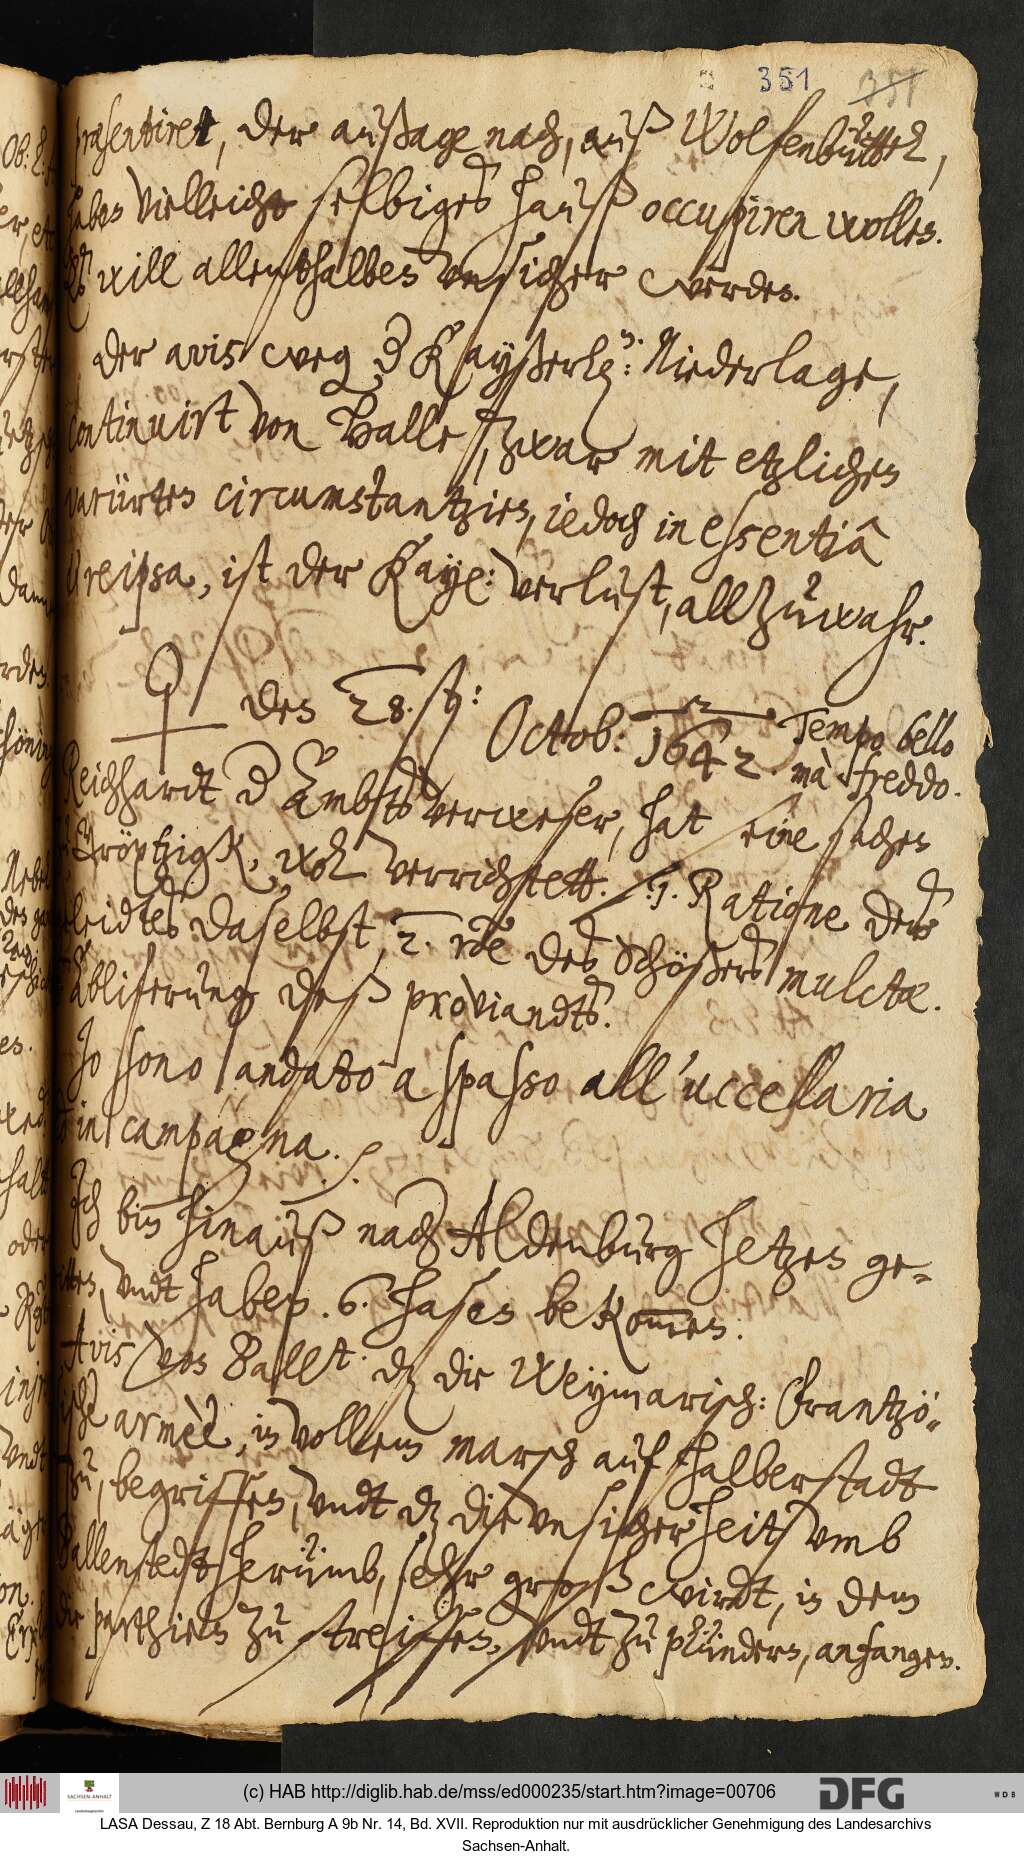 351 351
præsentiret, der außage nach, auß Wolfenbüttel,
haben vielleicht selbiges hauß occupiren wollen.
Es will allenthalben vnsicher werden.
Der avis weg d Kayßerln: Niederlage,
continuirt von Halle, zwar mit etzlichen
variirten circumstantzien, iedoch in essentiâ
& reipsa, ist der Kaye: verlust, allzuwahr.
♀ den 28. sten: Octob: 1642. Tempo bello
mà freddo.
Reichhardt d Ambtsverweser, hat eine sachen
zu Pröptzigk, wol verrichtett. 1. Ratione des
eleidtes daselbst, 2. rõe des Schößers mulctæ.
Abliferung deß proviandts.
Jo sono andato a spasso all'uccellaria
in campagna.
Jch bin hinauß nach Aldenburg hetzen ge-
ritten, vndt haben 6. hasen bekom̄en.
Avis von Ballst: dz die Weymarisch: Frantzö-
ische armèè, in vollem marsch auf halberstadt
zu, begriffen, vndt dz die vnsicherheit vmb
Ballenstedt herümb, sehr groß wirdt, in dem
die parthien zu streiffen, vndt zu plündern, anfangen.
(c) HAB http://diglib.hab.de/mss/ed000235/start.htm?image=00706
SACHSEN-ANHALT
DFG
WDB
LASA Dessau, Z 18 Abt. Bernburg A 9b Nr. 14, Bd. XVII. Reproduktion nur mit ausdrücklicher Genehmigung des Landesarchivs
Sachsen-Anhalt.